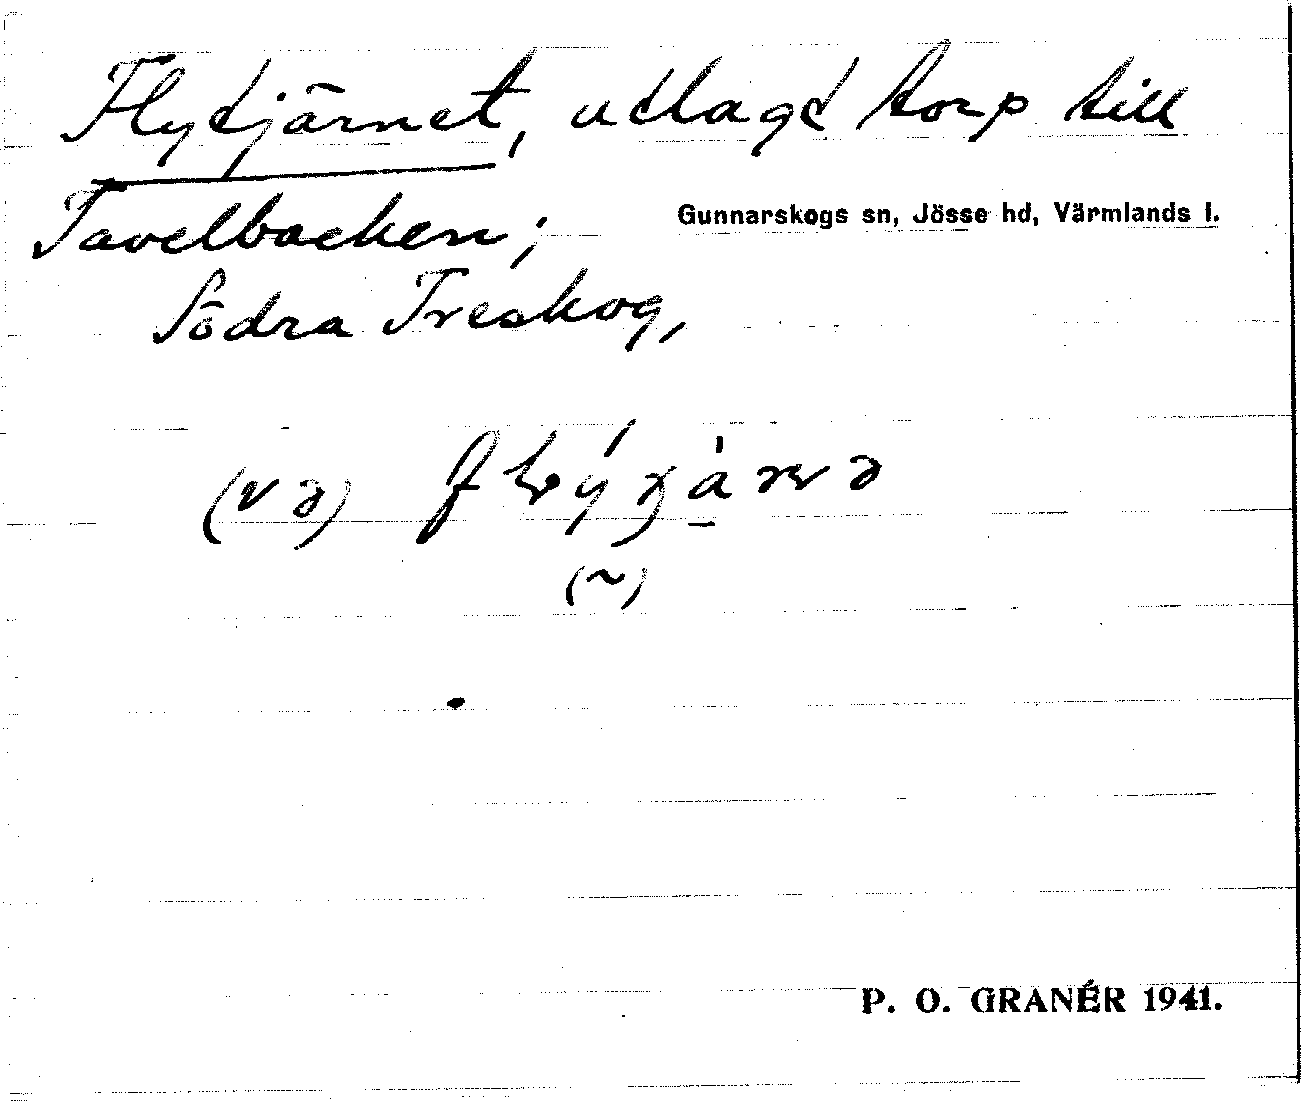 Flytjärnet, utlagt torp till
Tavelbacken;
Gunnarskogs sn, Jösse hd, Värmlands l.
Södra Treskog,
(və)
(~)
P. O. GRANÉR 1941.